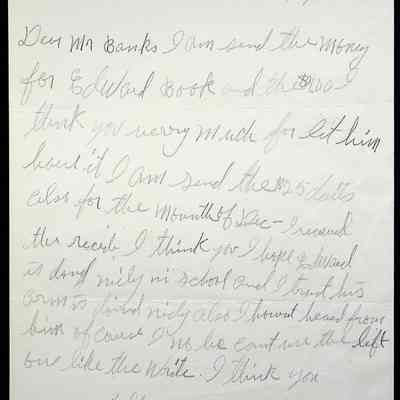 Dear Mr Banks I am send the money
for Edward Book and the $1.00 I
think you verry much for let him
have it I am send the $25 dolls
also for the mounth of Dec - I receved
the receite I think you I hope Edward
is doing nicly in school and I trust his
arm is doind nicly also I havent heard from
him of couse I no he cant use the left
one like the write. I think you